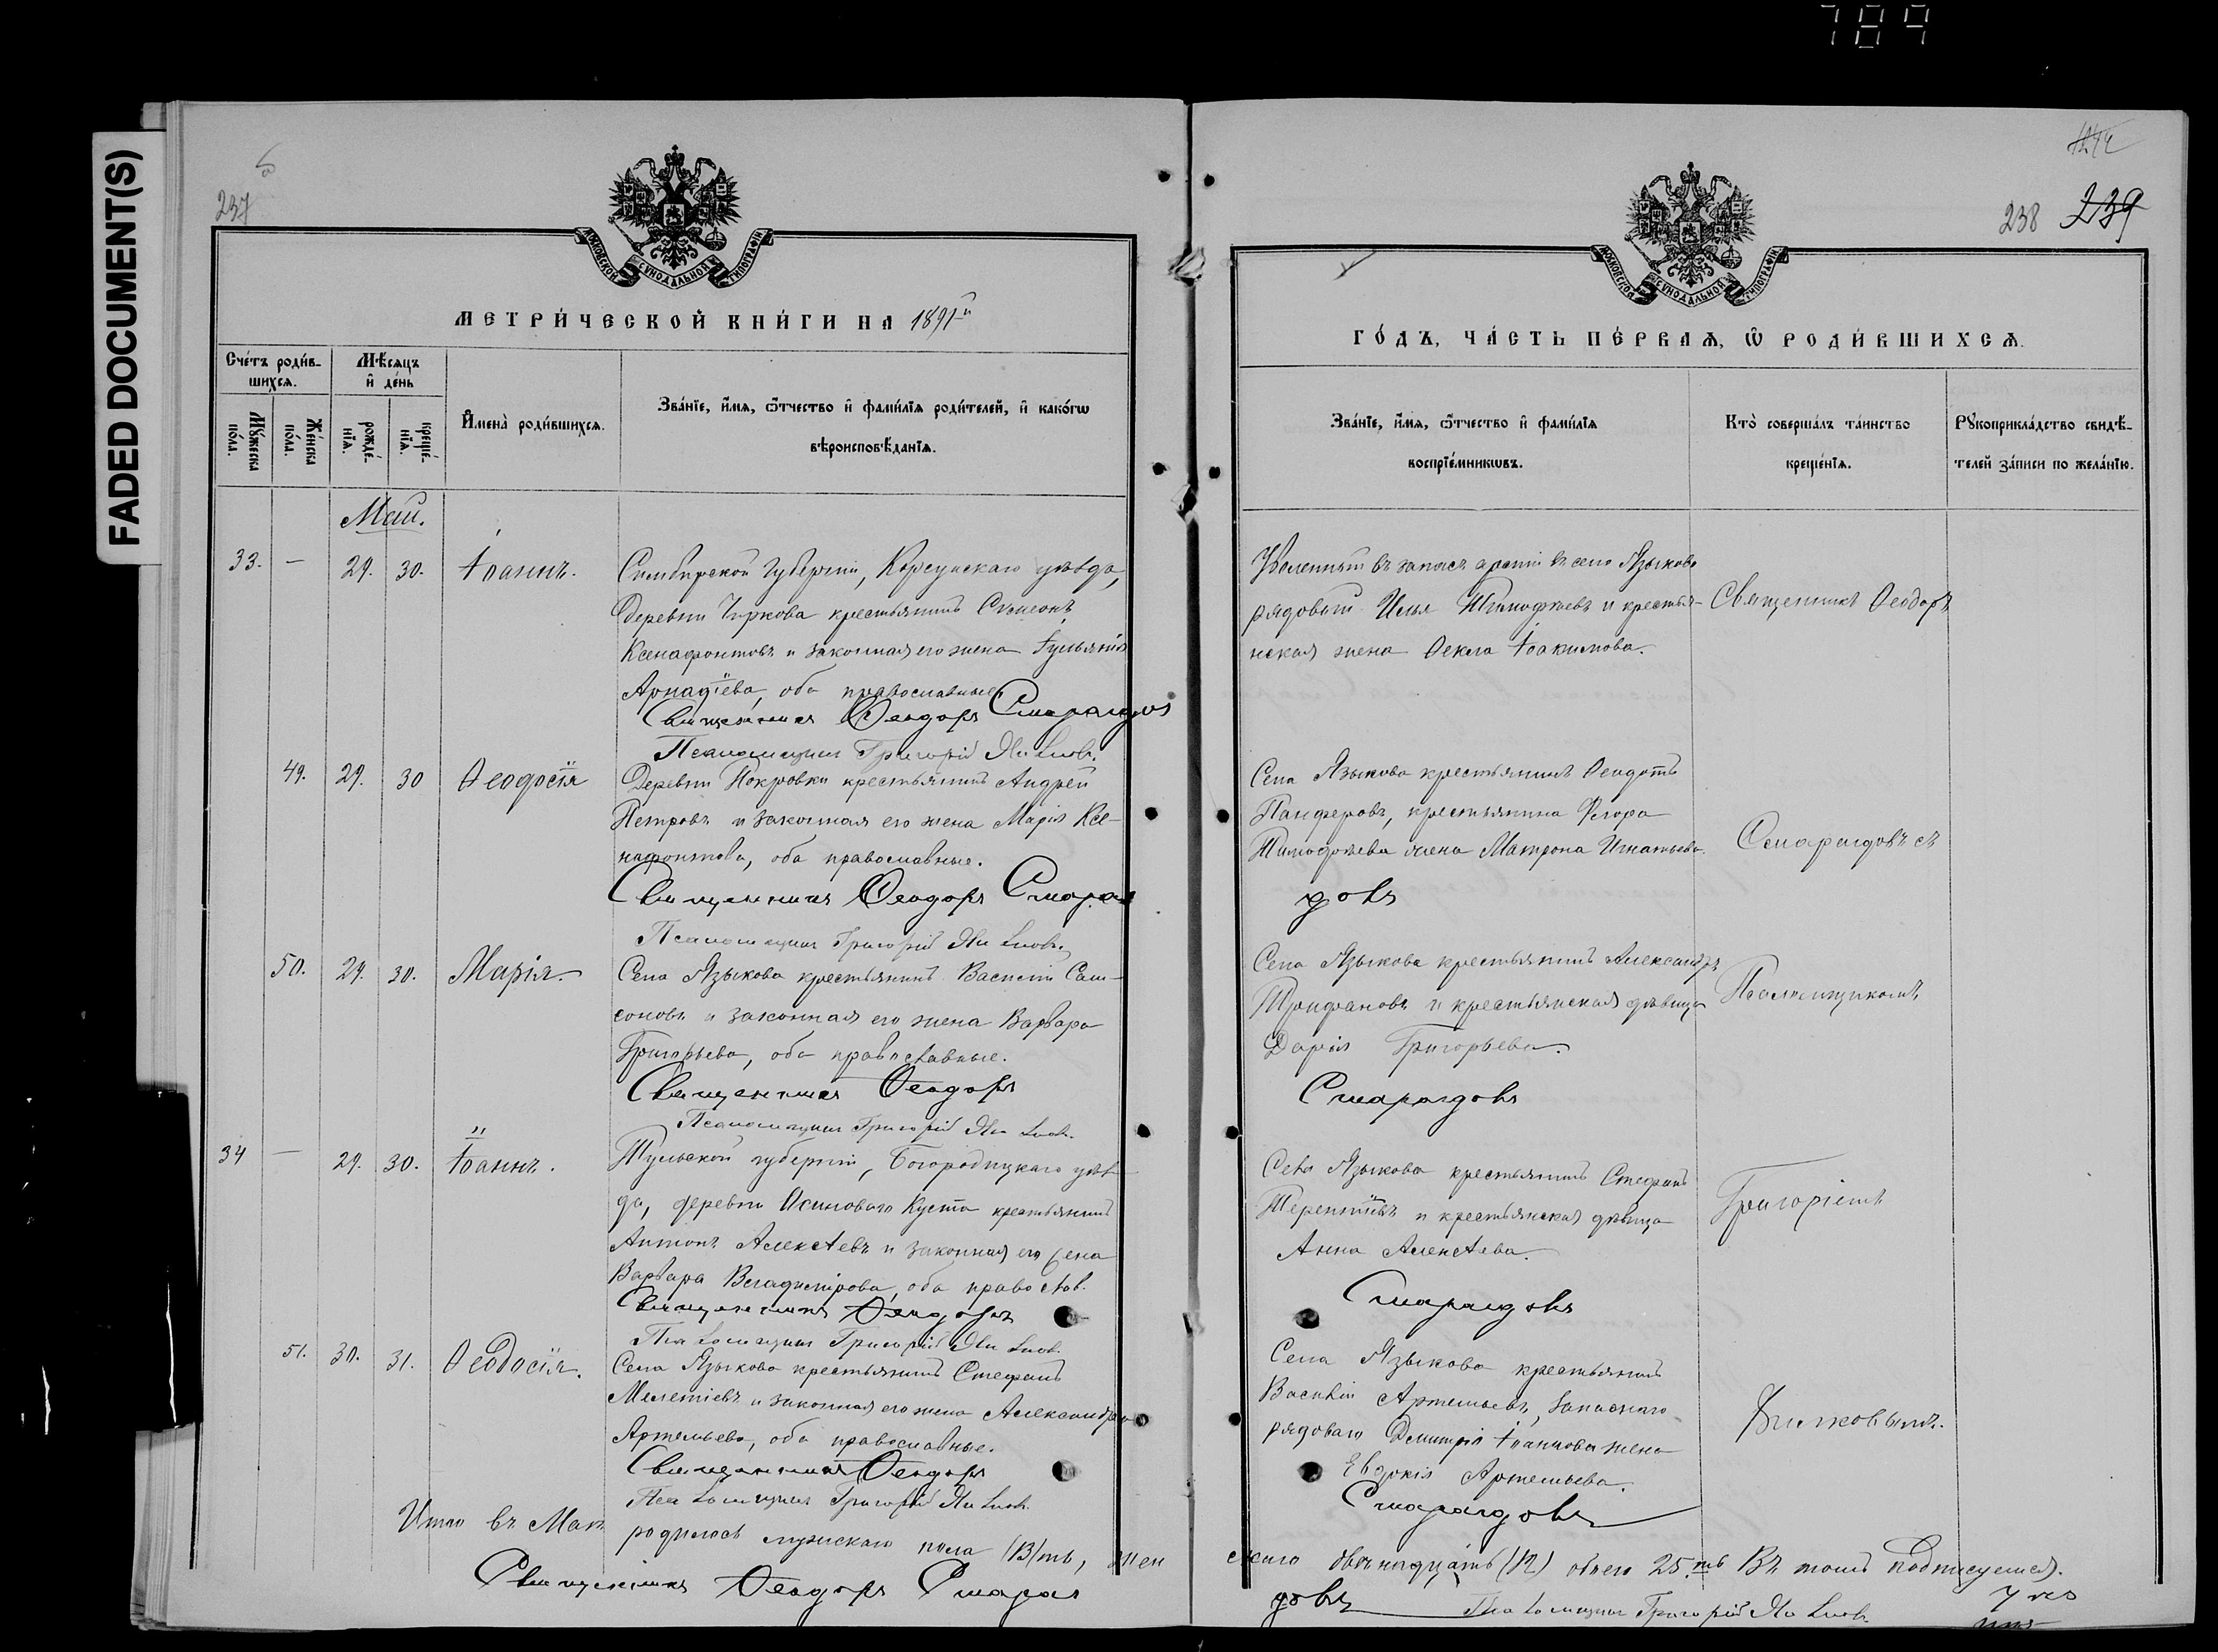 789
FADED DOCUMENT(S)
237
1244
238 239
МОСКОВСКОЙ СѴНОДАЛЬНОЙ ТИПОГРАФІИ
МЕТРИ́ЧЕСКОЙ КНИ́ГИ НА 1891й
Сче́тъ роди́в-
шихсѧ.
Мѣ́сѧцъ
и҆ де́нь
Мꙋ́жеска
по́ла.
Же́нска
по́ла.
рожде́-
нїѧ.
креще́-
нїѧ.
И҆мена̀ роди́вшихсѧ.
Зва́нїе, и҆́мѧ, ѻ҆́тчество и҆ фами́лїѧ роди́телей, и҆ како́гѡ
вѣроисповѣ́данїѧ.
Май.
33. — 29. 30. Іоаннъ.
Симбирской губерніи, Корсунскаго уѣзда,
деревни Чиркова крестьянинъ Симеонъ
Ксенафонтовъ и законная его жена Іуліанія
Аркадіева, оба православные.
Священникъ Ѳеодоръ Смарагдовъ
Псаломщикъ Григорій
49. 29. 30 Ѳеодосія
Деревни Покровки крестьянинъ Андрей
Петровъ и законная его жена Марія Ксе-
нафонтова, оба православные.
Священникъ Ѳеодоръ Смараг
Псаломщикъ Григорій
50. 29. 30. Марія.
Села Языкова крестьянинъ Василій Сам-
соновъ и законная его жена Варвара
Григорьева, оба православные.
Священникъ Ѳеодоръ
Псаломщикъ Григорій
34 — 29. 30. Іоаннъ.
Тульской губерніи, Богородицкаго уѣз-
да, деревни Осиноваго Куста крестьянинъ
Антонъ Алексѣевъ и законная его жена
Варвара Владимірова, оба православ.
Священникъ Ѳеодоръ
Псаломщикъ Григорій
51. 30. 31. Ѳеодосія.
Села Языкова крестьянинъ Стефанъ
Мелетіевъ и законная его жена Александра
Артемьева, оба православные.
Священникъ Ѳеодоръ
Псаломщикъ Григорій
Итого въ Маѣ родилось мужскаго пола (13)ть, жен
Священникъ Ѳеодоръ Смараг
МОСКОВСКОЙ СѴНОДАЛЬНОЙ ТИПОГРАФІИ
ГО́ДЪ, ЧА́СТЬ ПЕ́РВАѦ, Ѡ҆ РОДИ́ВШИХСѦ.
Зва́нїе, и҆́мѧ, ѻ҆́тчество и҆ фами́лїѧ
воспрїе́мникѡвъ.
Кто̀ соверша́лъ та́инство
креще́нїѧ.
Рꙋкоприкла́дство свидѣ́-
телей за́писи по жела́нїю.
Уволенный въ запасъ арміи въ село Языково
рядовый Илья Тимофѣевъ и крестья-
нская жена Ѳекла Іоакимова.
Священникъ Ѳеодоръ
Села Языкова крестьянинъ Ѳеодотъ
Панферовъ, крестьянина Егора
Тимофеева жена Матрона Игнатьева.
Смарагдовъ съ
довъ
Села Языкова крестьянинъ Александръ
Трифановъ и крестьянская дѣвица
Дарія Григорьева.
Псаломщикомъ
Смарагдовъ
Села Языкова крестьянинъ Стефанъ
Терентіевъ и крестьянская дѣвица
Анна Алексѣева.
Григоріемъ
Смарагдовъ
Села Языкова крестьянинъ
Василій Артемьевъ, запаснаго
рядоваго Димитрія Іоаннова жена
Евдокія Артемьева.
Смарагдовъ
скаго двѣнадцать (12) обоего 25.ть Въ томъ подписуемся.
довъ Псаломщикъ Григорій